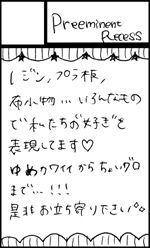 Preeminent
Recess
レジン,プラ板,
布小物…いろんなもの
で私たちの“好き”を
表現してます♡
ゆめカワイイからちょいグロ
まで…!!!
是非お立ち寄り下さい